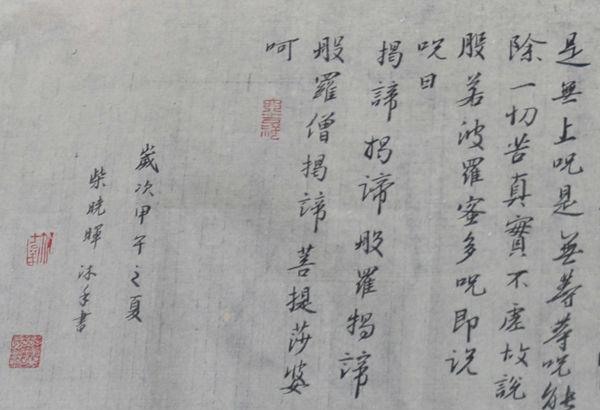 是無上呪是無等等呪能
除一切苦真實不虛故說
般若波羅蜜多呪即说
呪曰
揭諦揭諦般羅揭諦
般羅僧揭諦菩提莎婆
呵
歲次甲午之夏
柴晓暉沐手書